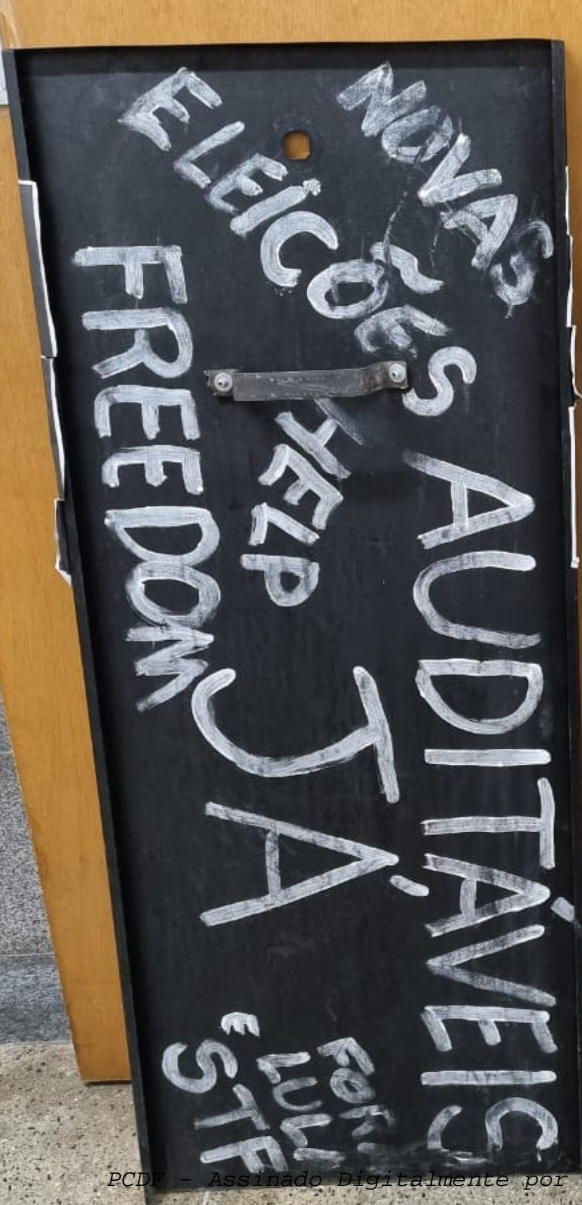 NOVAS
ELEIÇÕES
AUDITÁVEIS
JÁ
HELP
FREEDOM
E
STF
PCDF - Assinado Digitalmente por